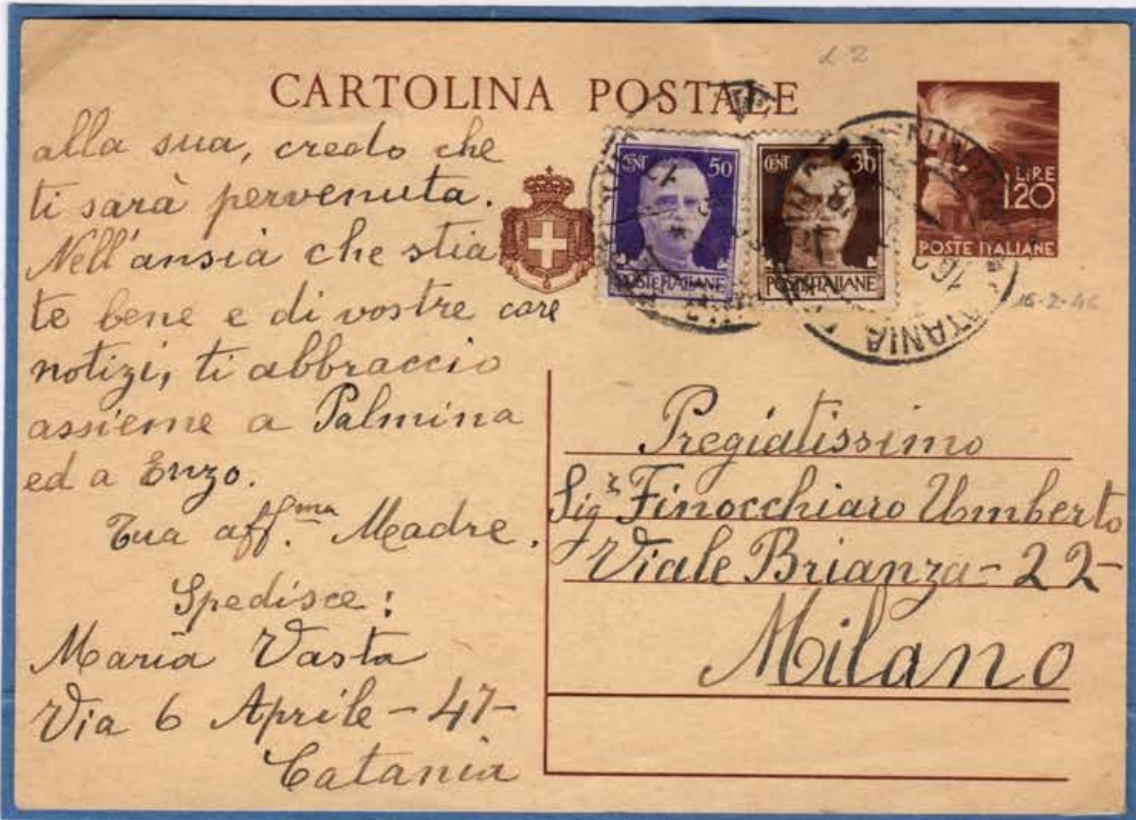 L 2
CARTOLINA POSTALE
alla sua, credo che
ti sarà pervenuta.
Nell'ansia che stia
te bene e di vostre care
notizi, ti abbraccio
assieme a Palmina
ed a Enzo.
Tua aff.ma Madre.
Spedisce:
Maria Vasta
Via 6 Aprile - 47-
Catania
CENT 50
POSTE ITALIANE
CENT 30
POSTE ITALIANE
LIRE
1.20
POSTE ITALIANE
CATANIA
16-2-46
Pregiatissimo
Sigr Finocchiaro Umberto
Viale Brianza - 22-
Milano